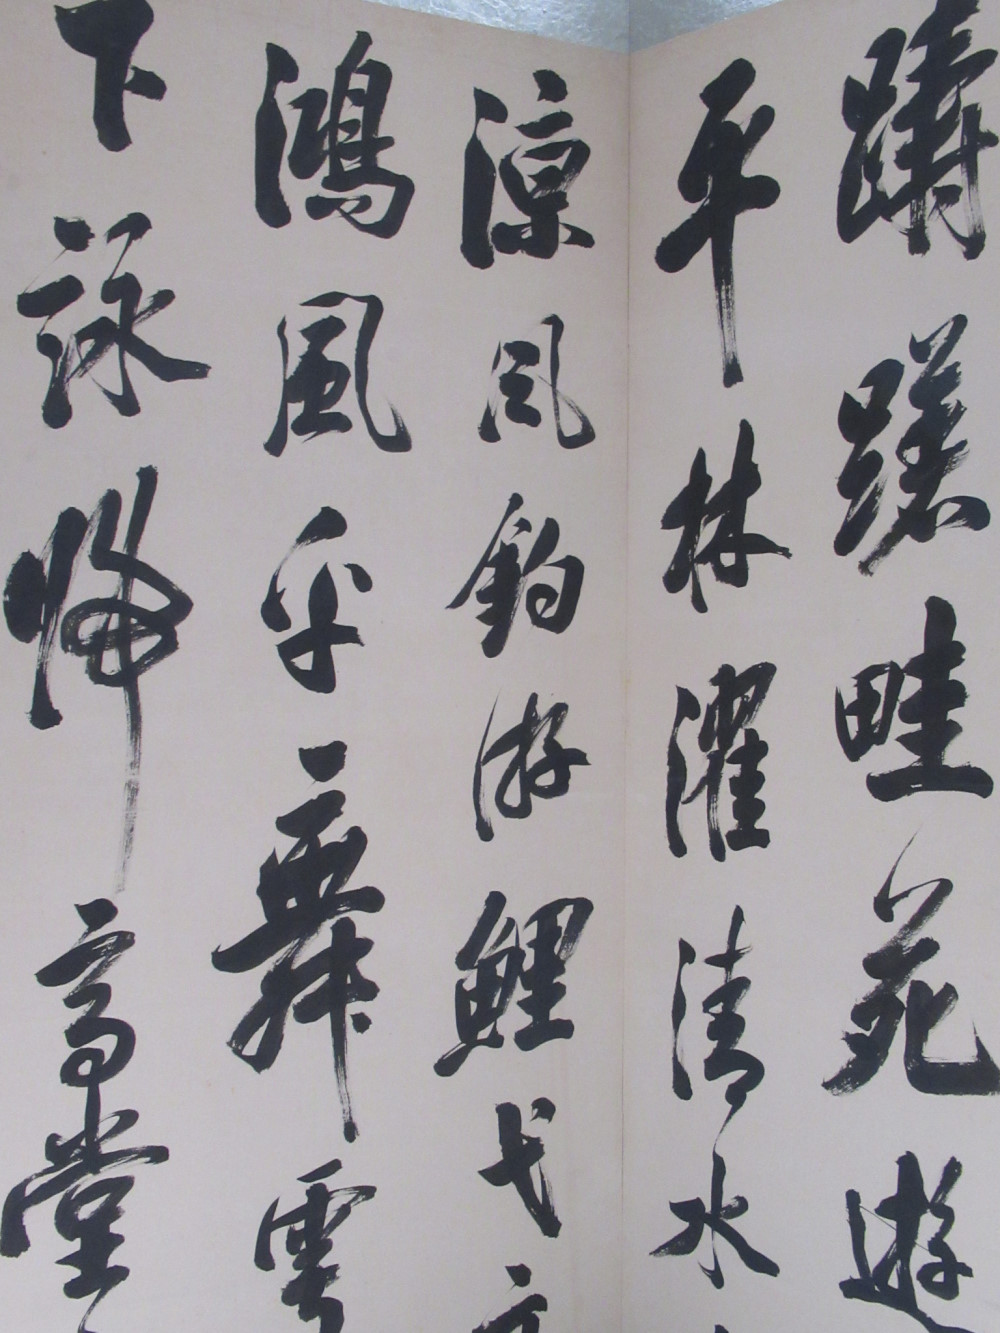 躊躇畦苑遊
平林濯清水
涼風釣游鯉弋
鴻風乎舞雩
下詠歸高堂